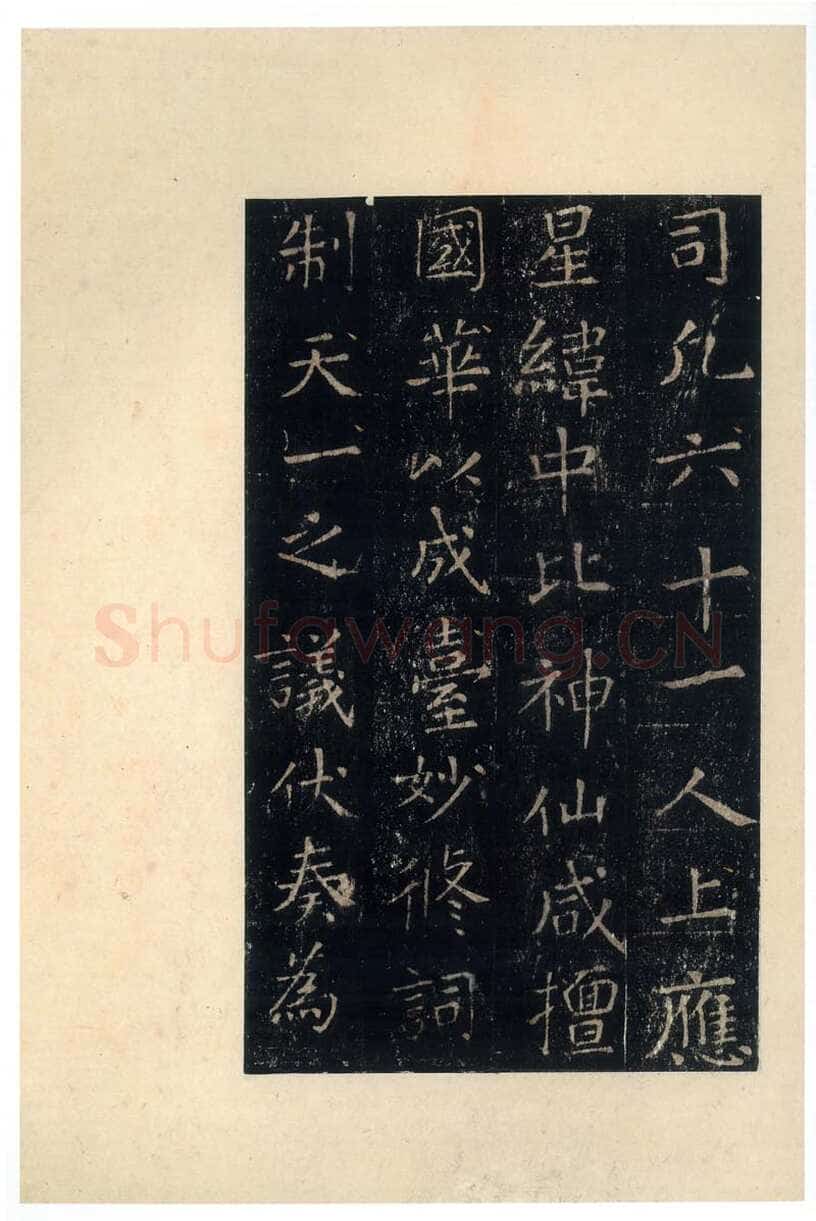 司凡六十一人上應
星緯中比神仙咸擅
國華以成臺妙修詞
制天一之議伏奏為
Shufawang.CN